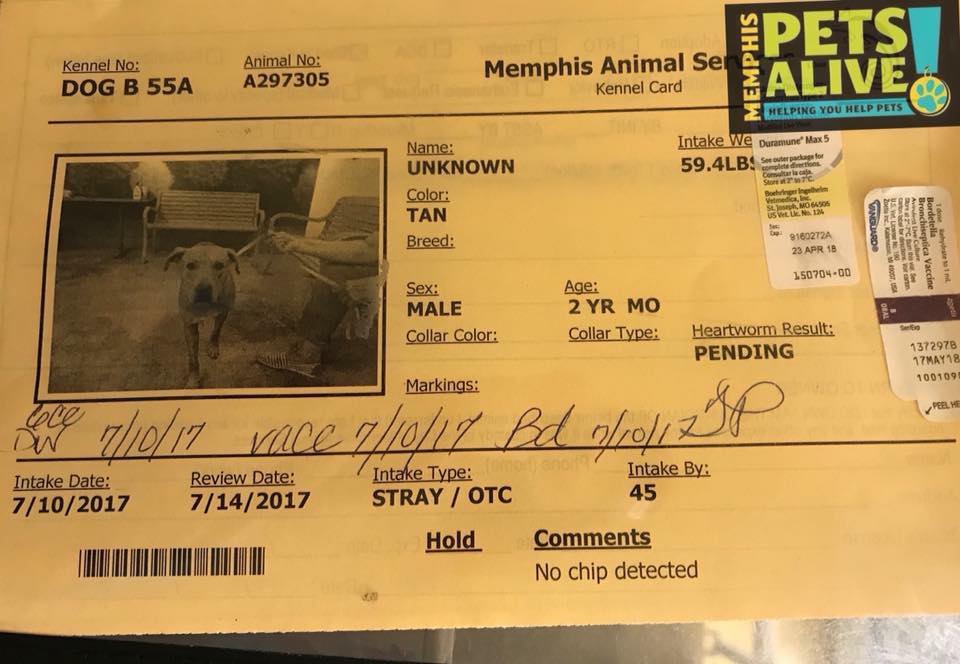 MEMPHIS
PETS
ALIVE!
HELPING YOU HELP PETS
Kennel No:
DOG B 55A
Animal No:
A297305
Memphis Animal Ser
Kennel Card
Name:
UNKNOWN
Intake We
59.4LBS
Color:
TAN
Breed:
Sex:
MALE
Age:
2 YR MO
Collar Color:
Collar Type:
Heartworm Result:
PENDING
Markings:
DW 7/10/17 vacc 7/10/17 Bd 7/10/17
Intake Date:
7/10/2017
Review Date:
7/14/2017
Intake Type:
STRAY / OTC
Intake By:
45
Hold
Comments
No chip detected
Duramune® Max 5
See outer package for
complete directions.
Consultar la caja.
Store at 2° to 7°C.
Boehringer Ingelheim
Vetmedica, Inc.
St. Joseph, MO 64506
US Vet. Lic. No. 124
Ser.
Exp.
9160272A
23 APR 18
150704-00
VANGUARD®
B
ORAL
Bordetella
Bronchiseptica Vaccine
Avirulent Live Culture
1 dose. Rehydrate to 1 mL.
Ser/Exp
137297B
17MAY18
100109
PEEL HE